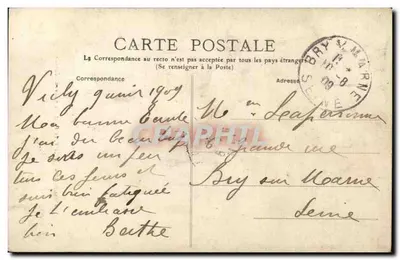 CARTE POSTALE
La Correspondance au recto n'est pas acceptée par tous les pays étrangers
(Se renseigner à la Poste)
Correspondance
Adresse
BRY S MARNE
SEINE
Vichy 9 août 1909
Mon bonne
j'ai du beaucoup
Je suis un peu
tous ces jours et
suis bien fatiguée
Je t'embrasse
bien Berthe
CPAPHIL
Grande rue
Bry sur Marne
Seine